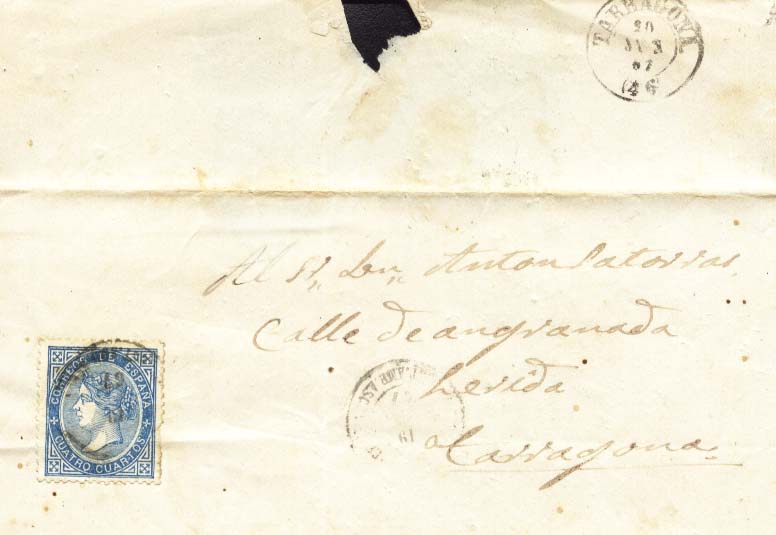 TARRAGONA
20
JUN
67
(46)
Al Sr. Dn. Anton Satorras
Calle de angranada
Lerida
a Tarragona
CORREOS DE ESPAÑA
CUATRO CUARTOS